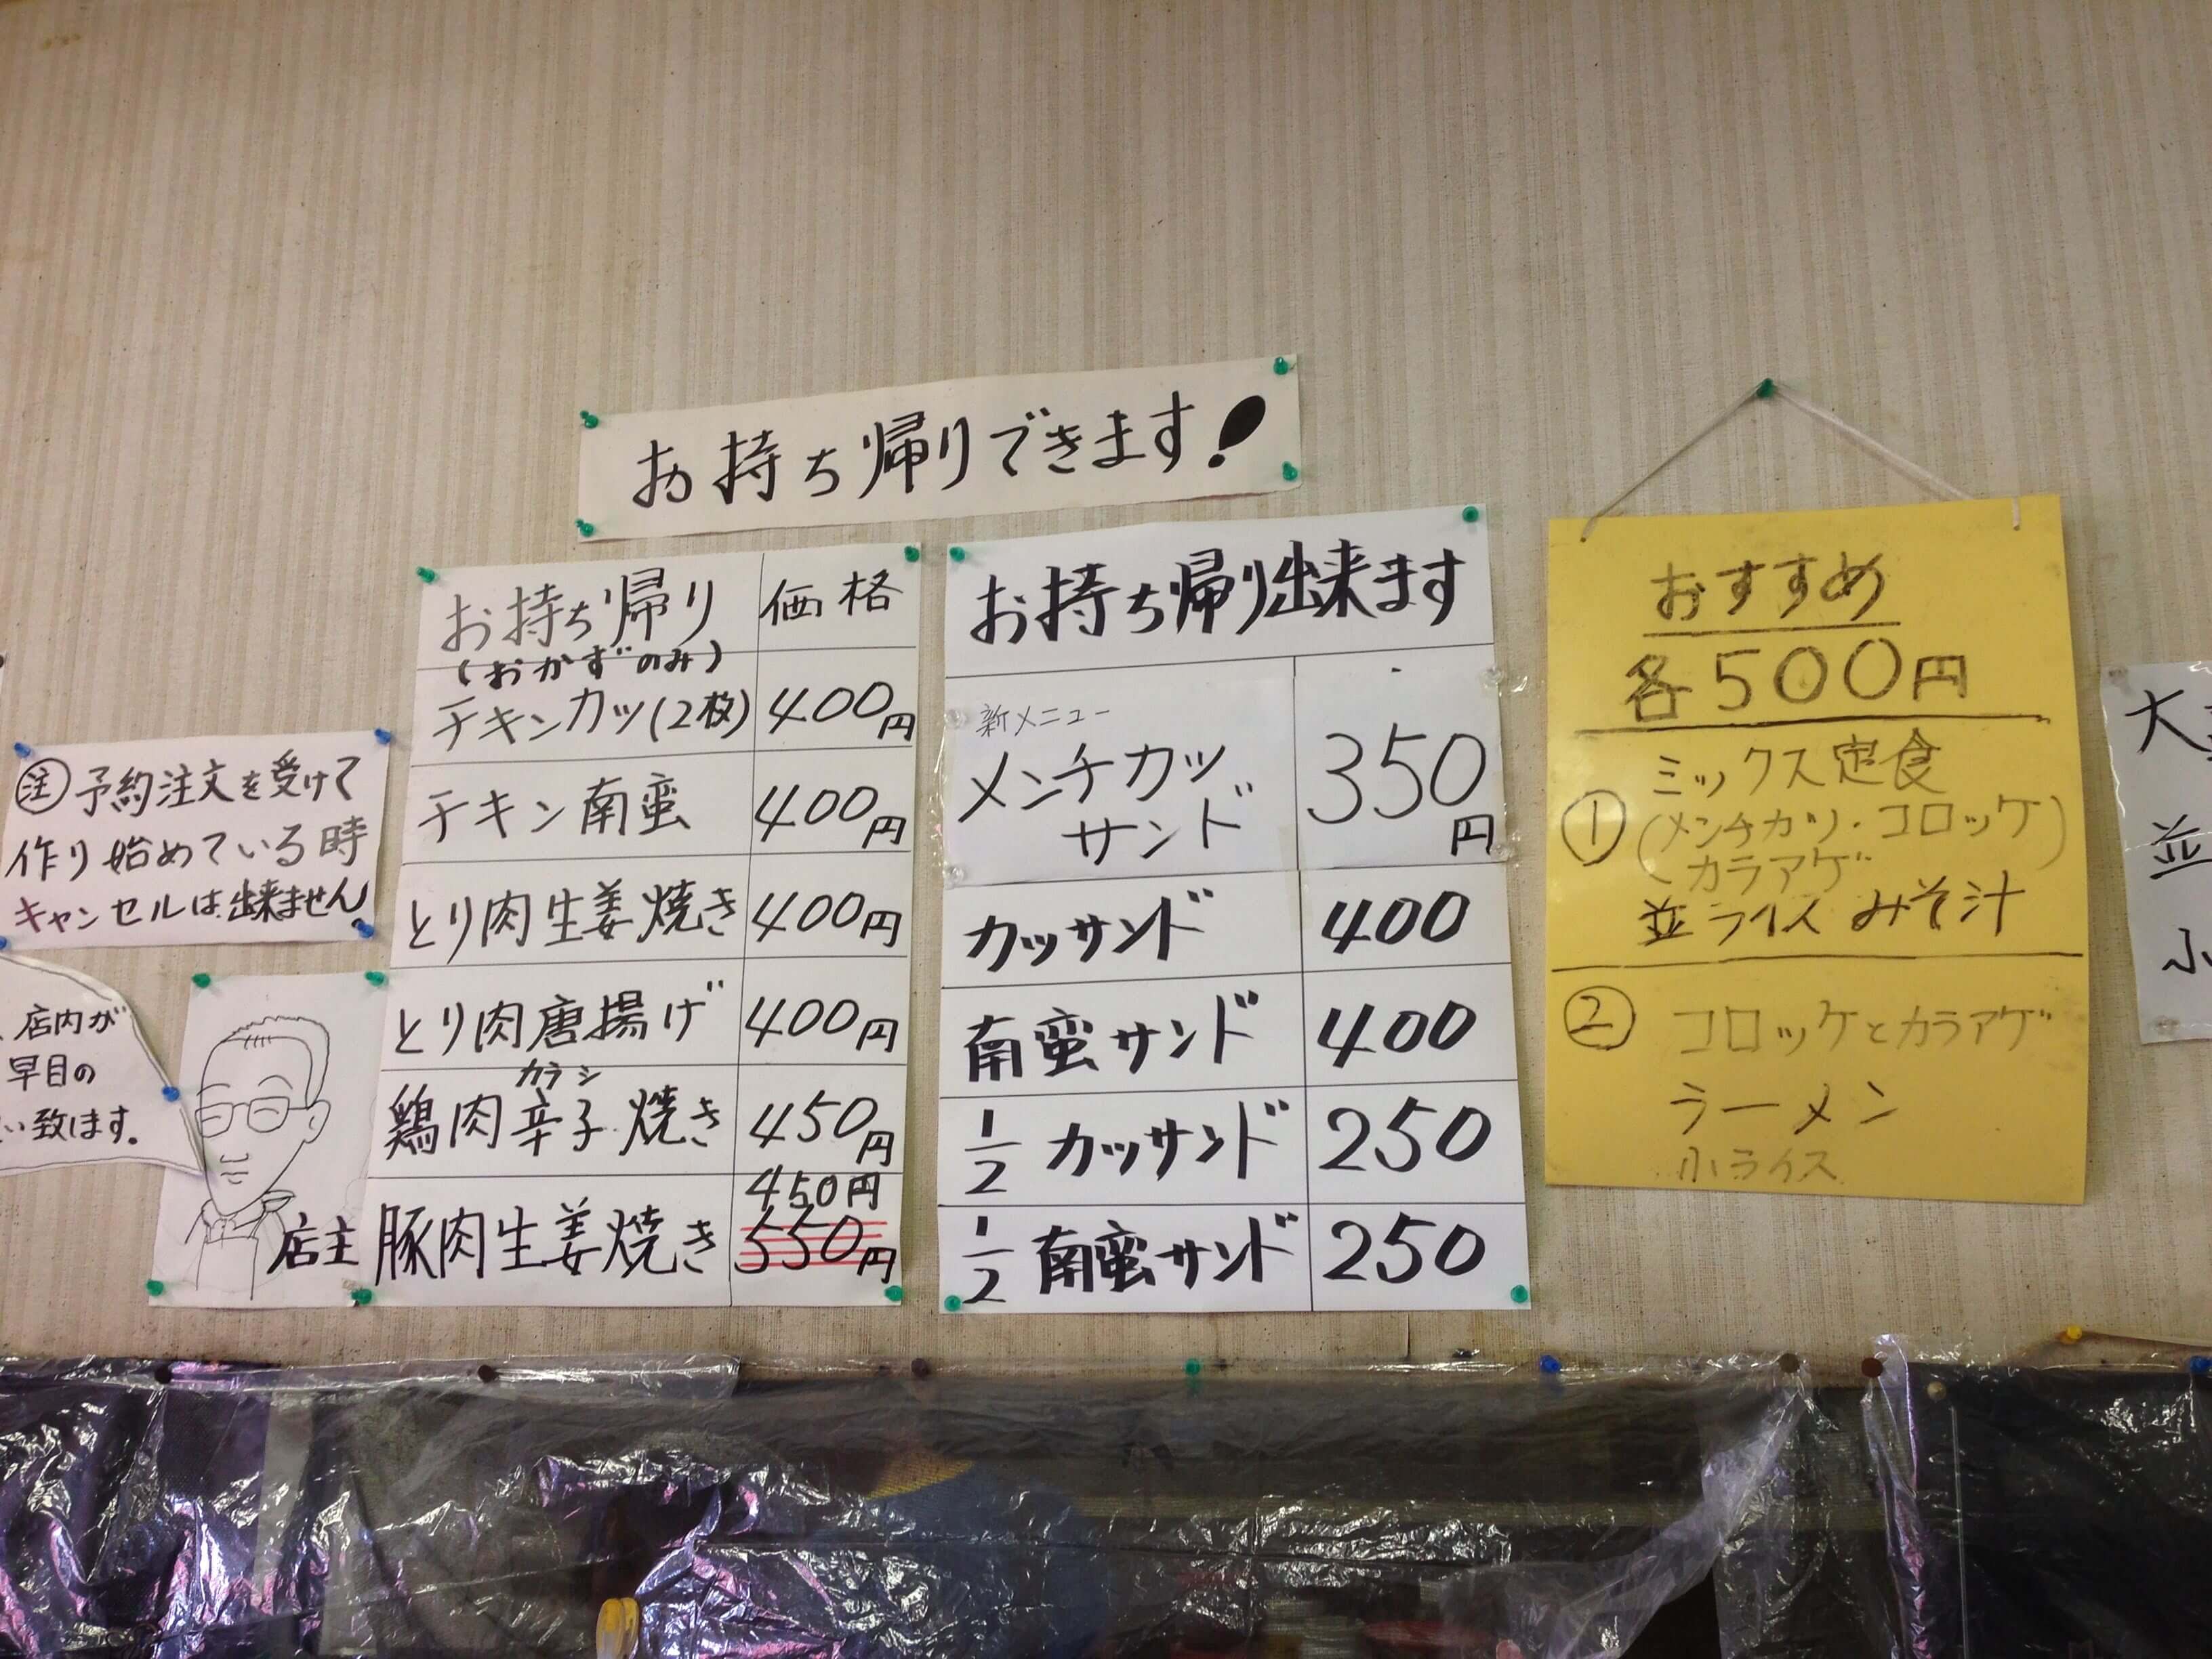 お持ち帰りできます!
注 予約注文を受けて
作り始めている時
キャンセルは出来ません
店内が
早目の
い致します。
店主
お持ち帰り 価格
(おかずのみ)
チキンカツ(2枚) 400円
チキン南蛮 400円
とり肉生姜焼き 400円
とり肉唐揚げ 400円
カラシ
鶏肉辛子焼き 450円
450円
豚肉生姜焼き 550円
お持ち帰り出来ます
新メニュー
メンチカツ
サンド 350円
カツサンド 400
南蛮サンド 400
1/2 カツサンド 250
1/2 南蛮サンド 250
おすすめ
各500円
ミックス定食
① (メンチカツ・コロッケ
カラアゲ)
並ライス みそ汁
② コロッケとカラアゲ
ラーメン
小ライス
大
並
小